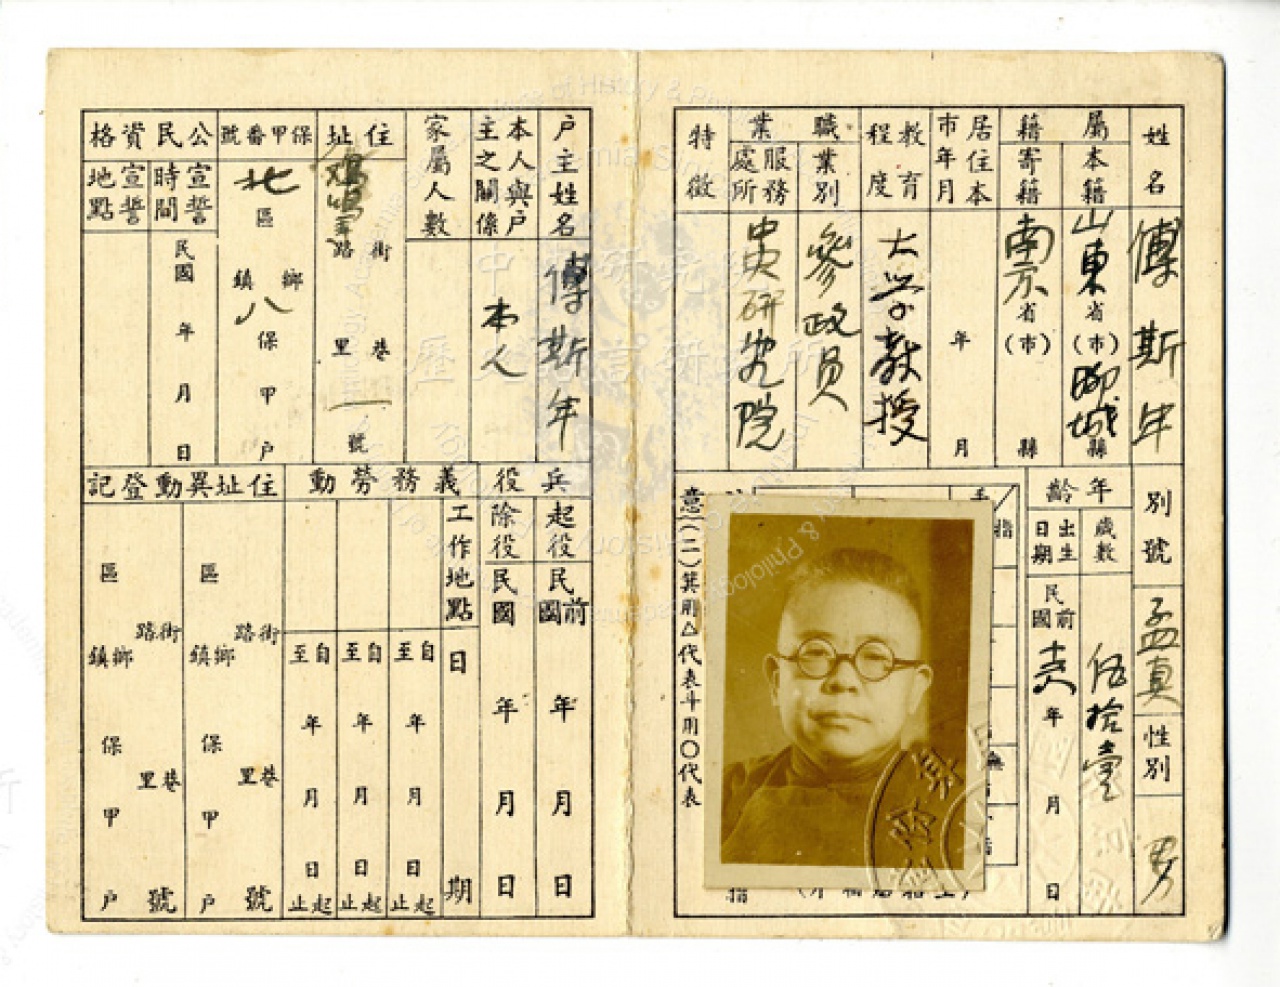 姓名 傅斯年
別號 孟真
性別 男
屬籍
本籍 山東省(市)聊城縣
寄籍 南京省(市) 縣
年齡
歲數 伍拾壹
出生日期 民前國 年 月 日
居住本市年月 年 月
教育程度 大学教授
職業
業別 參政員
服務處所 史研究院
特徵
意(二)箕用△代表斗用○代表
戶主姓名 傅斯年
本人與戶主之關係 本人
家屬人數
住址 鷄鳴寺路街 里巷 一號
保甲番號 北區 鎮鄉 八保 甲 戶
公民資格
宣誓時間 民國 年 月 日
宣誓地點
兵役
起役 民前國 年 月 日
除役 民國 年 月 日
義務勞動
工作地點
日期
自至 年 月 日起止
自至 年 月 日起止
自至 年 月 日起止
住址異動登記
區 鎮鄉 路街 保 里巷 甲 戶 號
區 鎮鄉 路街 保 里巷 甲 戶 號
中央研究院
歷史語言研究所